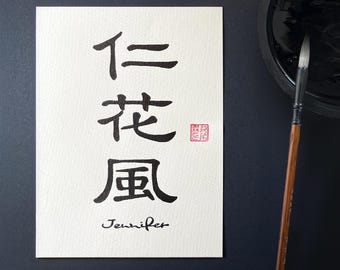 仁
花
風
Jennifer